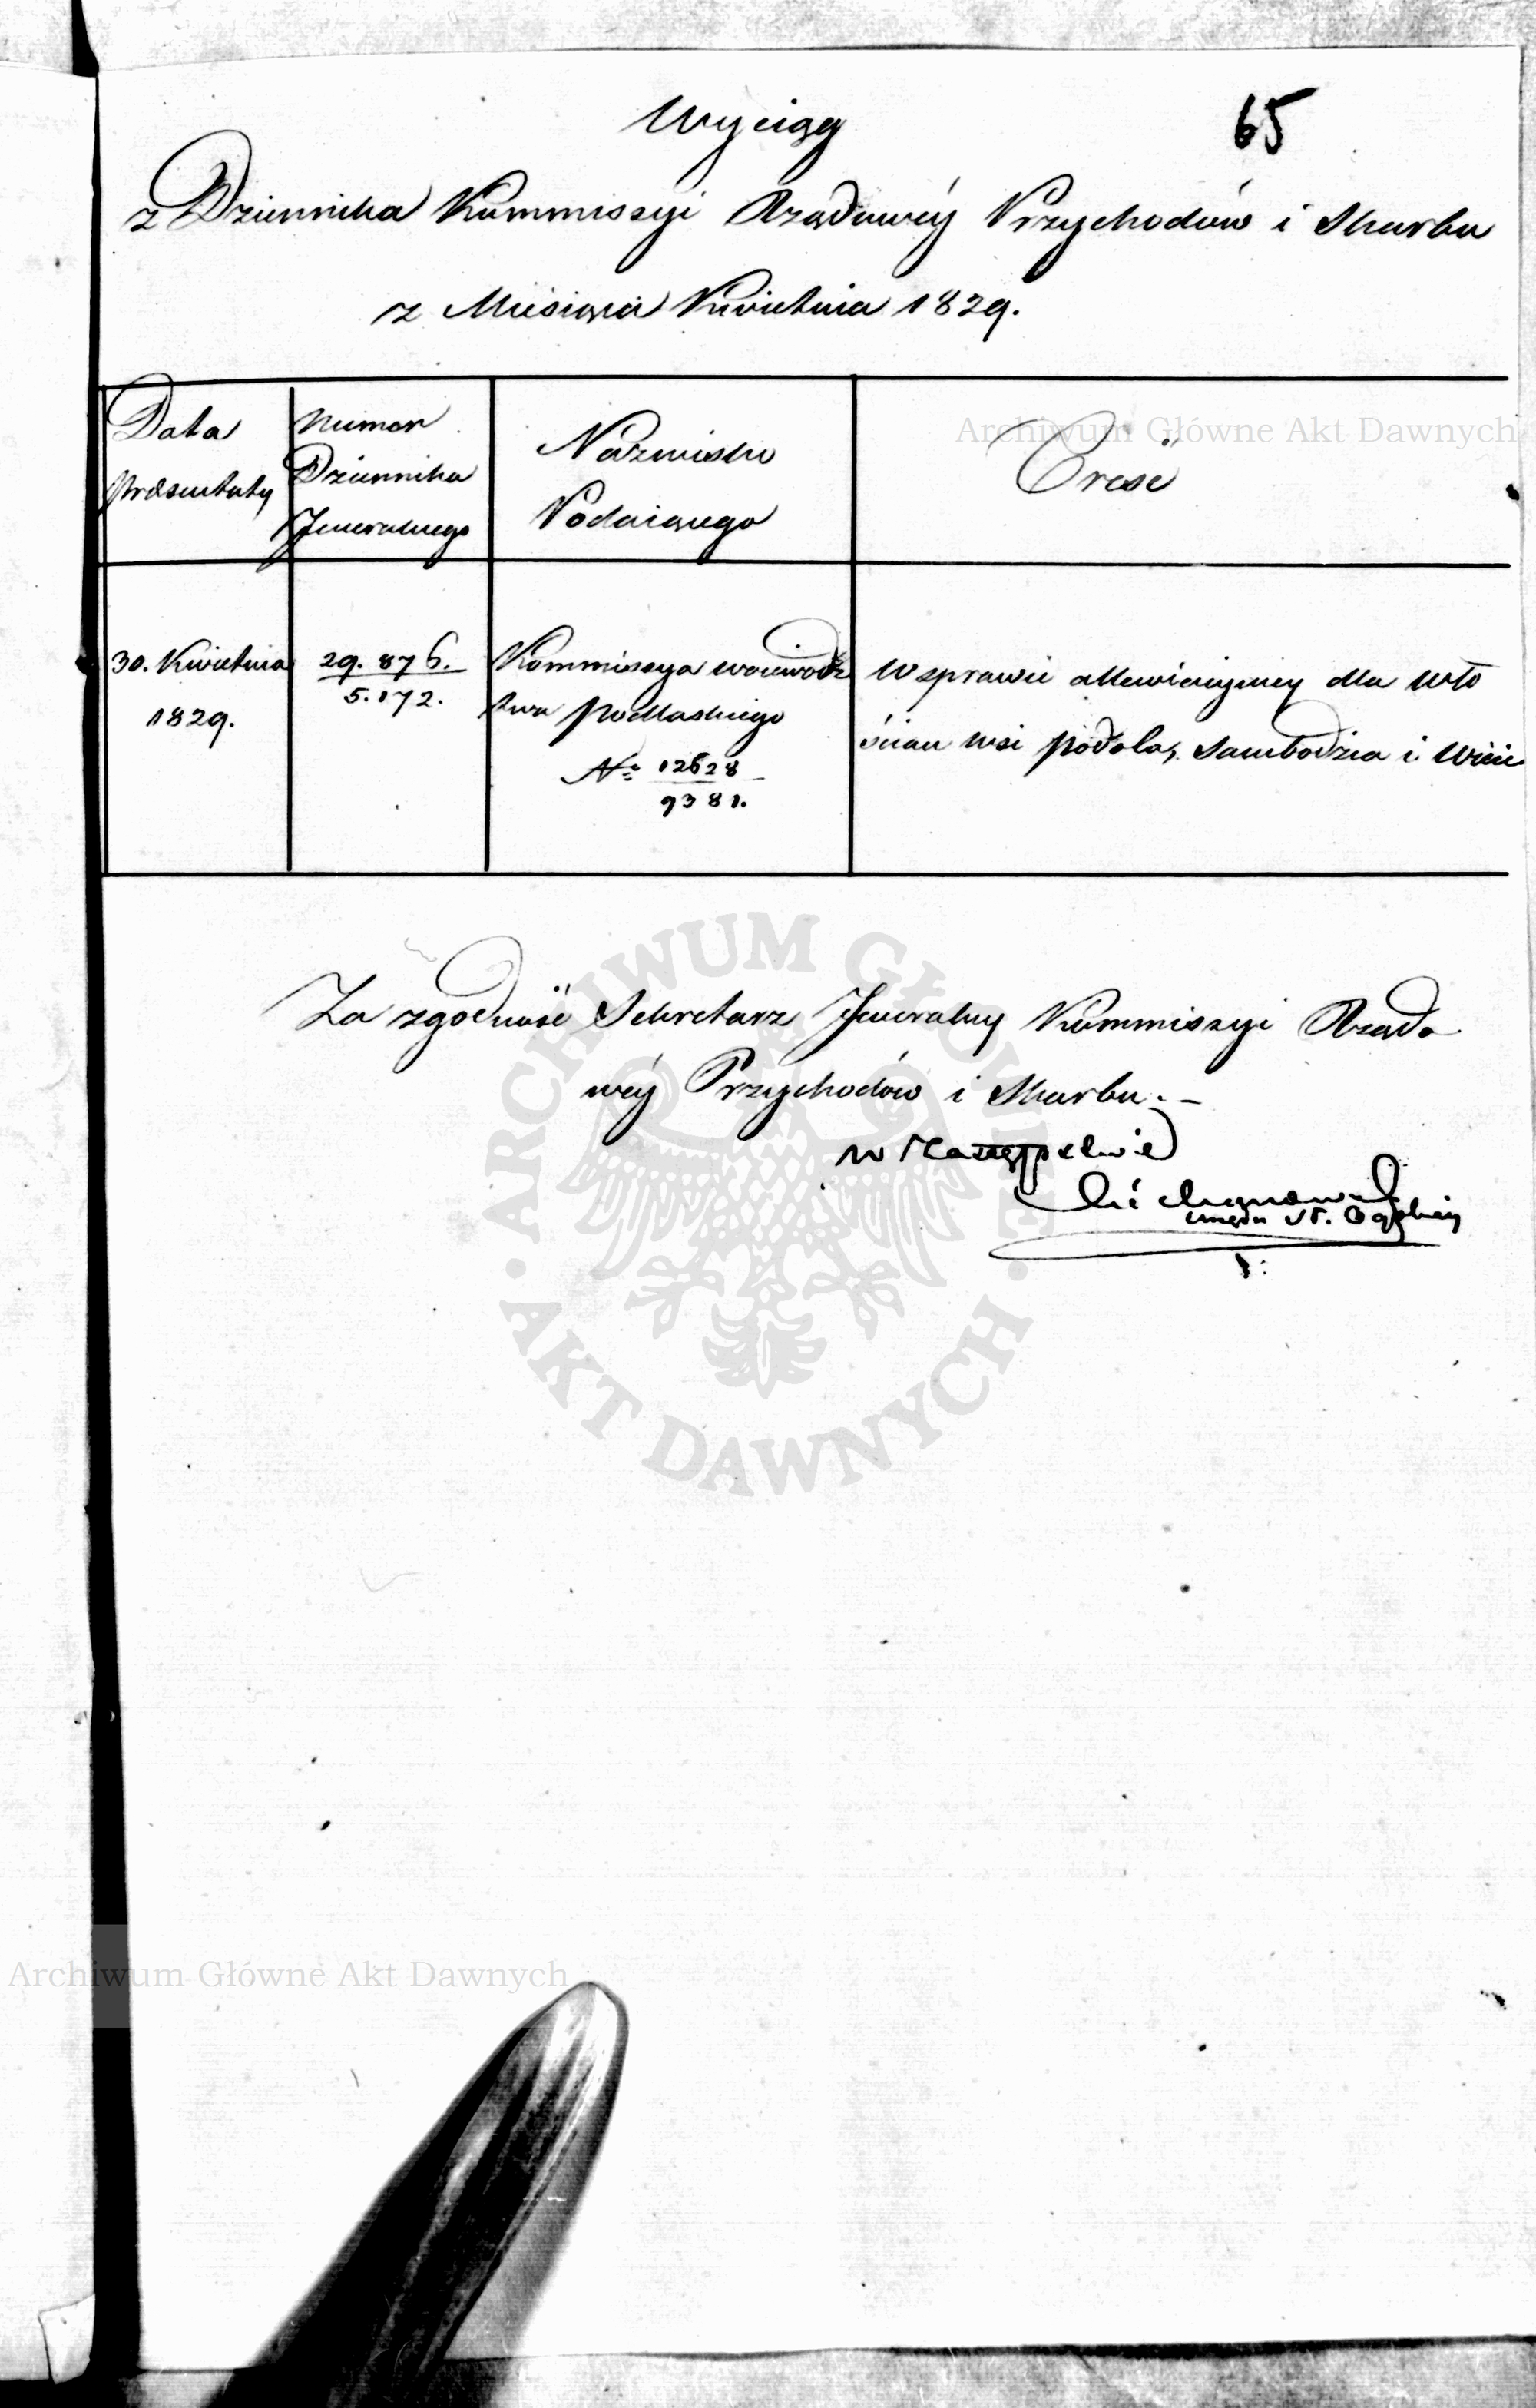 65
Wyciąg
z Dziennika Kommissyi Rządowéy Przychodów i Skarbu
z Miesiąca Kwietnia 1829.
Data
Præsentaty
Numer
Dziennika
Jeneralnego
Nazwisko
Podaiącego
Treść
30. Kwietnia
1829.
29.876.
5.172.
Kommissya Woiewódz
twa Podlaskiego
No 12628
9381.
W sprawie allewiacyiney dla Wło
ścian wsi Podola,
i
Za zgodność Sekretarz Jeneralny Kommissyi Rządo
wéy Przychodów i Skarbu.-
w Zastępstwie
Archiwum Główne Akt Dawnych
ARCHIWUM GŁÓWNE
AKT DAWNYCH
Archiwum Główne Akt Dawnych